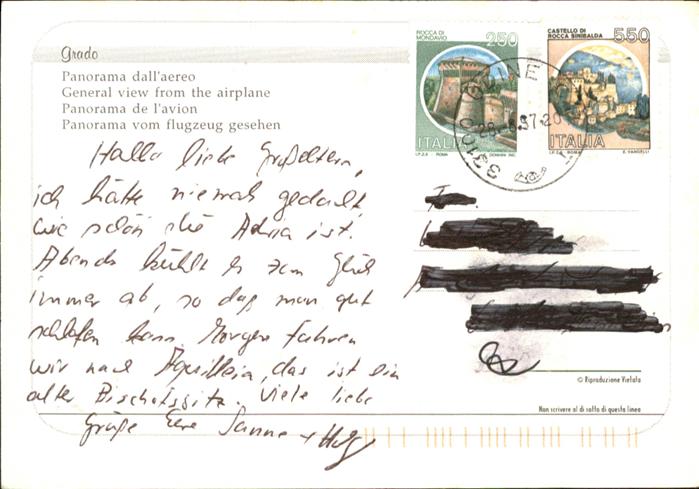 Grado
Panorama dall'aereo
General view from the airplane
Panorama de l'avion
Panorama vom flugzeug gesehen
ROCCA DI
MONDAVIO
250
ITALIA
I.P.Z.S. ROMA
CASTELLO DI
ROCCA SINIBALDA
550
ITALIA
I.P.Z.S. ROMA
E. VANGELLI
Hallo liebe Großeltern,
ich hätte niemals gedacht,
wie schön die Adria ist.
Abends kühlt es zum Glück
immer ab, so daß man gut
schlafen kann. Morgen fahren
wir nach Aquilleia, das ist ein
alter Bischofssitz. Viele liebe
Grüße Eure Sanne +
© Riproduzione Vietata
Non scrivere al di sotto di questa linea